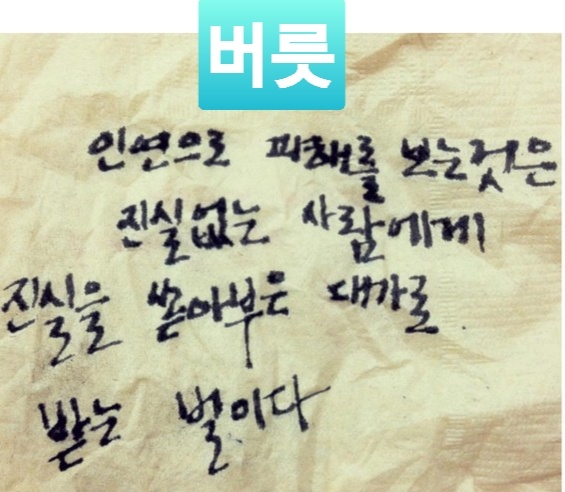 버릇
인연으로 피해를 보는것은
진실없는 사람에게
진실을 쏟아부은 대가로.
받는 벌이다